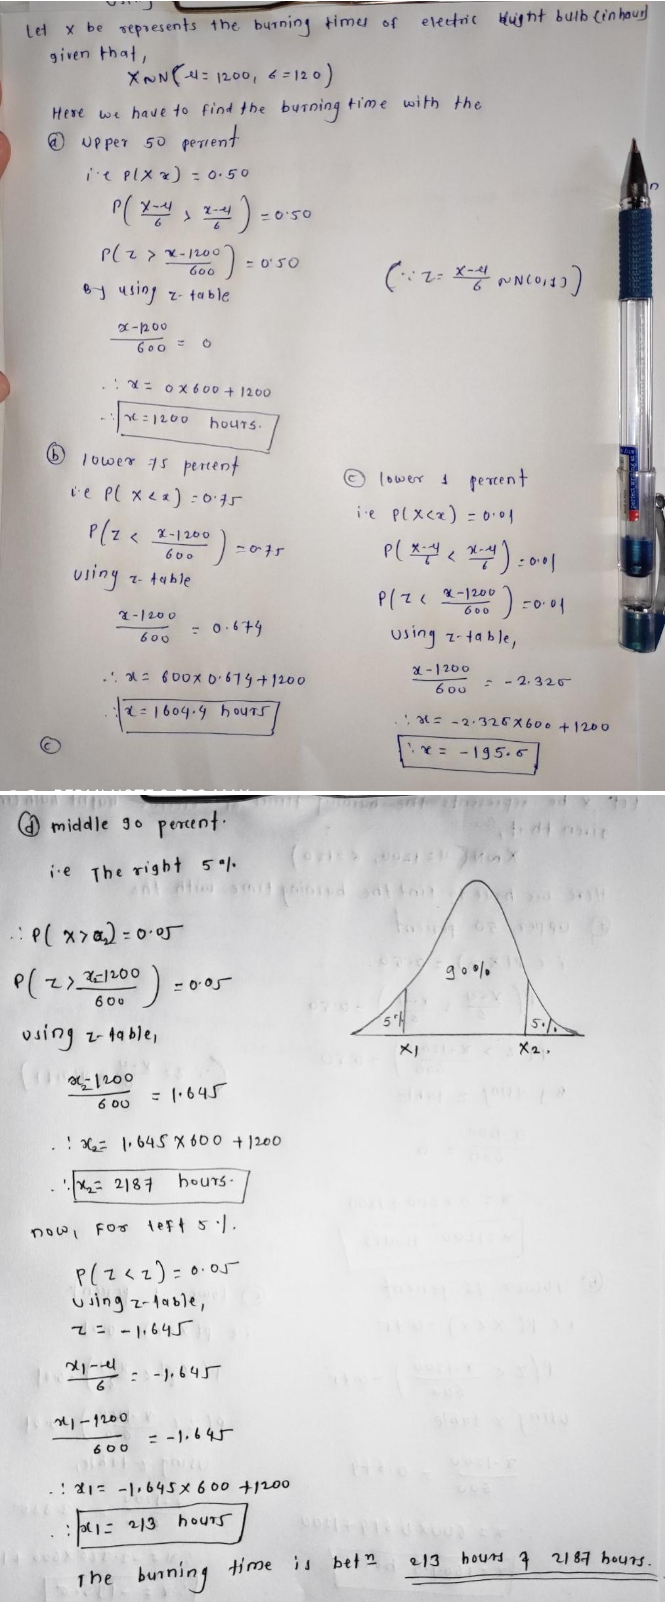 Let x be represents the burning times of electric light bulb (in hour)
given that,
X~N(μ=1200, σ=120)
Here we have to find the burning time with the
(a) upper 50 percent
i.e P(X x) = 0.50
P( (X-μ)/σ > (x-μ)/σ ) = 0.50
P( z > (x-1200)/600 ) = 0.50
(∵ z = (x-μ)/σ ~N(0,1))
By using z-table
(x-1200)/600 = 0
∴ x = 0x600+1200
∴ x=1200 hours.
(b) lower 75 percent
i.e P( X<x) = 0.75
P( z < (x-1200)/600 ) = 0.75
using z-table
(x-1200)/600 = 0.674
∴ x= 600x0.674+1200
∴ x=1604.4 hours
(c)
(c) lower 1 percent
i.e P(X<x) = 0.01
P( (X-μ)/σ < (x-μ)/σ ) = 0.01
P( z < (x-1200)/600 ) = 0.01
using z-table,
(x-1200)/600 = -2.326
∴ x= -2.326x600 +1200
∴ x = -195.6
(d) middle 90 percent.
i.e The right 5%.
∴ P( X>x₂) = 0.05
P( z > (x₂-1200)/600 ) = 0.05
using z-table,
(x₂-1200)/600 = 1.645
∴ x₂= 1.645 x 600 +1200
∴ x₂= 2187 hours.
90%
5%
5%.
X₁
X₂.
now, For left 5%.
P(z<z) = 0.05
using z-table,
z = -1.645
(x₁-μ)/σ = -1.645
(x₁-1200)/600 = -1.645
∴ x₁= -1.645x600 +1200
∴ x₁= 213 hours
The burning time is betⁿ 213 hours & 2187 hours.